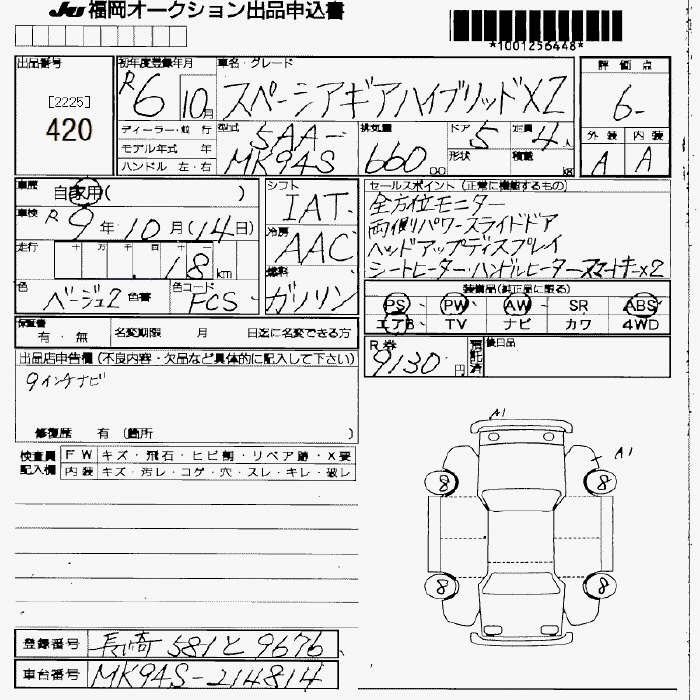 JU 福岡オークション出品申込書
*1001256448*
出品番号
[2225]
420
初年度登録年月
R6 10月
車名・グレード
スペーシアギアハイブリッドX2
評価点
6-
外装 内装
A A
ディーラー・並行
モデル年式 年
ハンドル 左・右
型式
5AA-
MK94S
排気量
660 cc
ドア 5
形状
定員 4人
積載 kg
車歴
自家用( )
車検 R9年10月(14日)
走行 十 万 千 百 十 一
18 km
色 ベージュ2 色替 色コード FCS
シフト
IAT
冷房
AAC
燃料
ガソリン
セールスポイント (正常に機能するもの)
全方位モニター
両側パワースライドドア
ヘッドアップディスプレイ
シートヒーター・ハンドルヒーター スマートキーX2
装備品(純正品に限る)
PS PW AW SR ABS
エアB TV ナビ カワ 4WD
保証書
有・無
名変期限 月 日迄に名変できる方
R券
9130円
預託済
後日品
出品店申告欄(不良内容・欠品など具体的に記入して下さい)
9インチナビ
修復歴 有 (箇所 )
検査員記入欄
FW キズ・飛石・ヒビ割・リペア跡・X要
内装 キズ・汚レ・コゲ・穴・スレ・キレ・破レ
A1
A1
8 8
8 8
登録番号 長崎 581 と 9676
車台番号 MK94S-214814